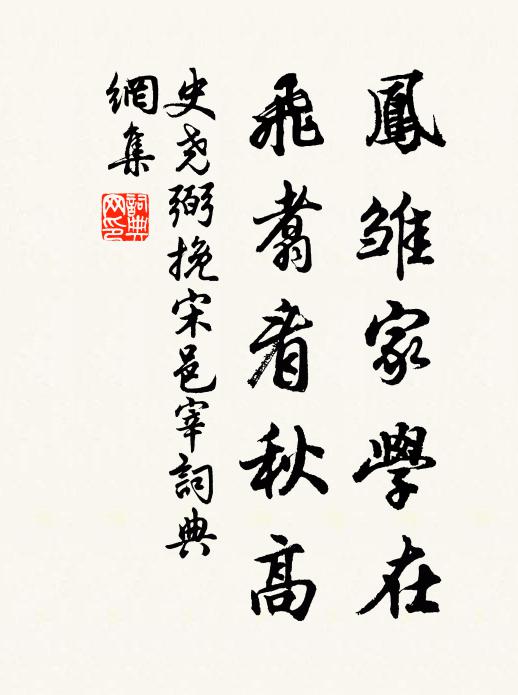 鳳雛家學在
飛翥看秋高
史堯弼挽宋邑宰詞典
網集
詞典
网印